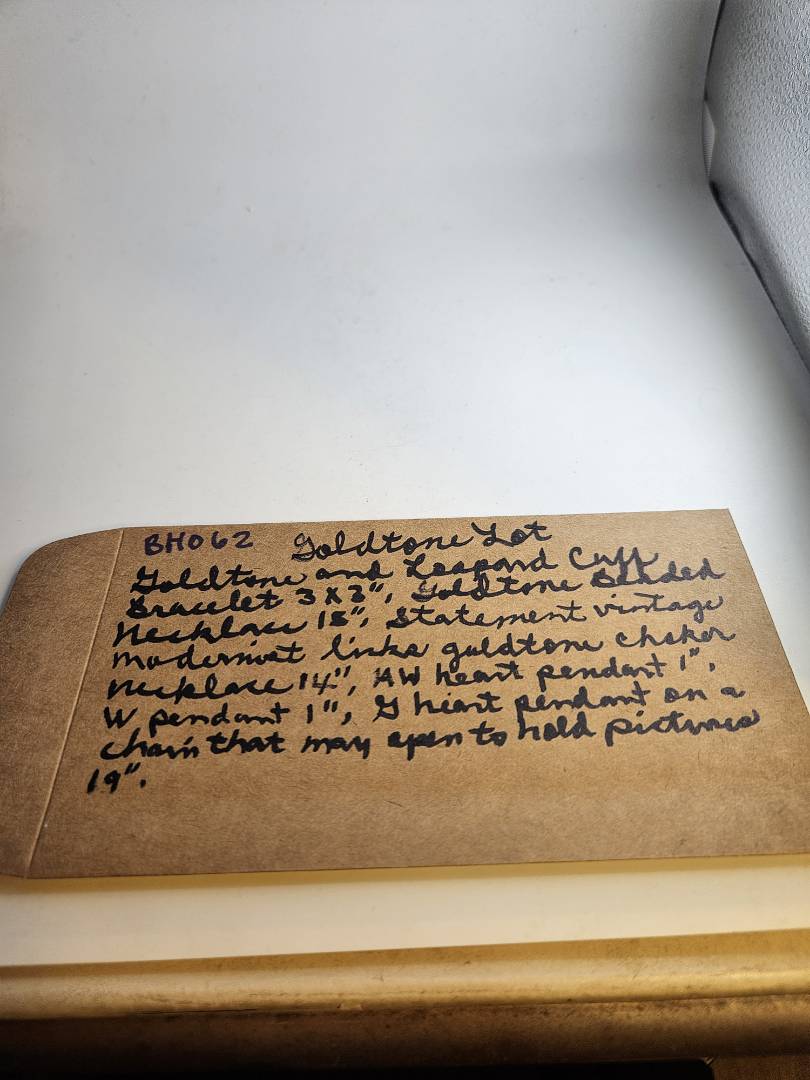 BH062 Goldtone Lot
Goldtone and Leapard Cuff
Bracelet 3 x 3", Goldtone Beaded
Necklace 18", Statement vintage
modernist links goldtone choker
necklace 14", AW heart pendant 1",
W pendant 1", G heart pendant on a
chain that may open to hold pictures
19".